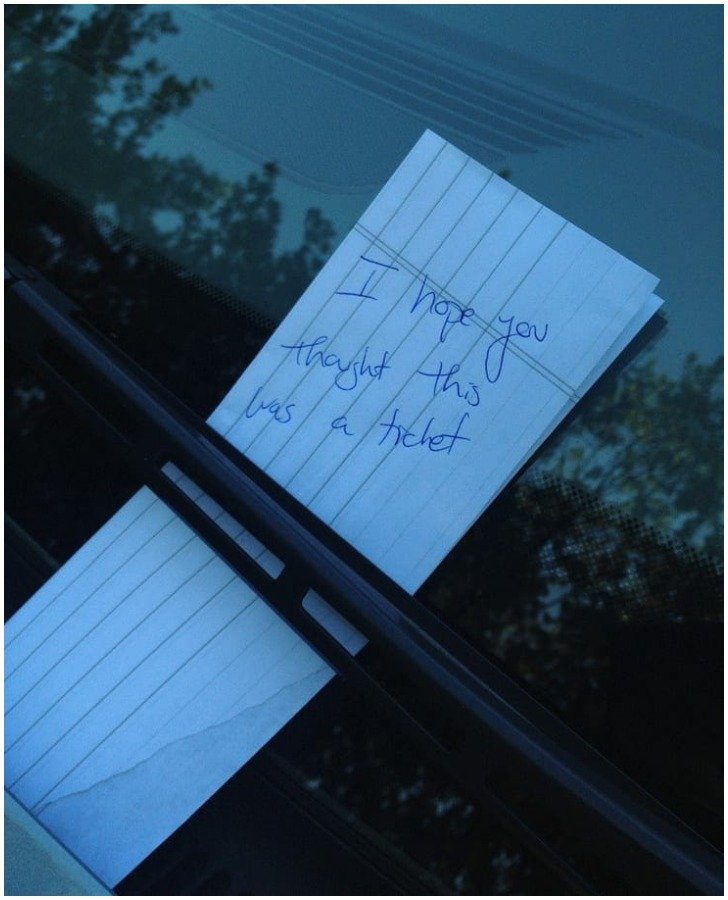 I hope you
thought this
was a ticket